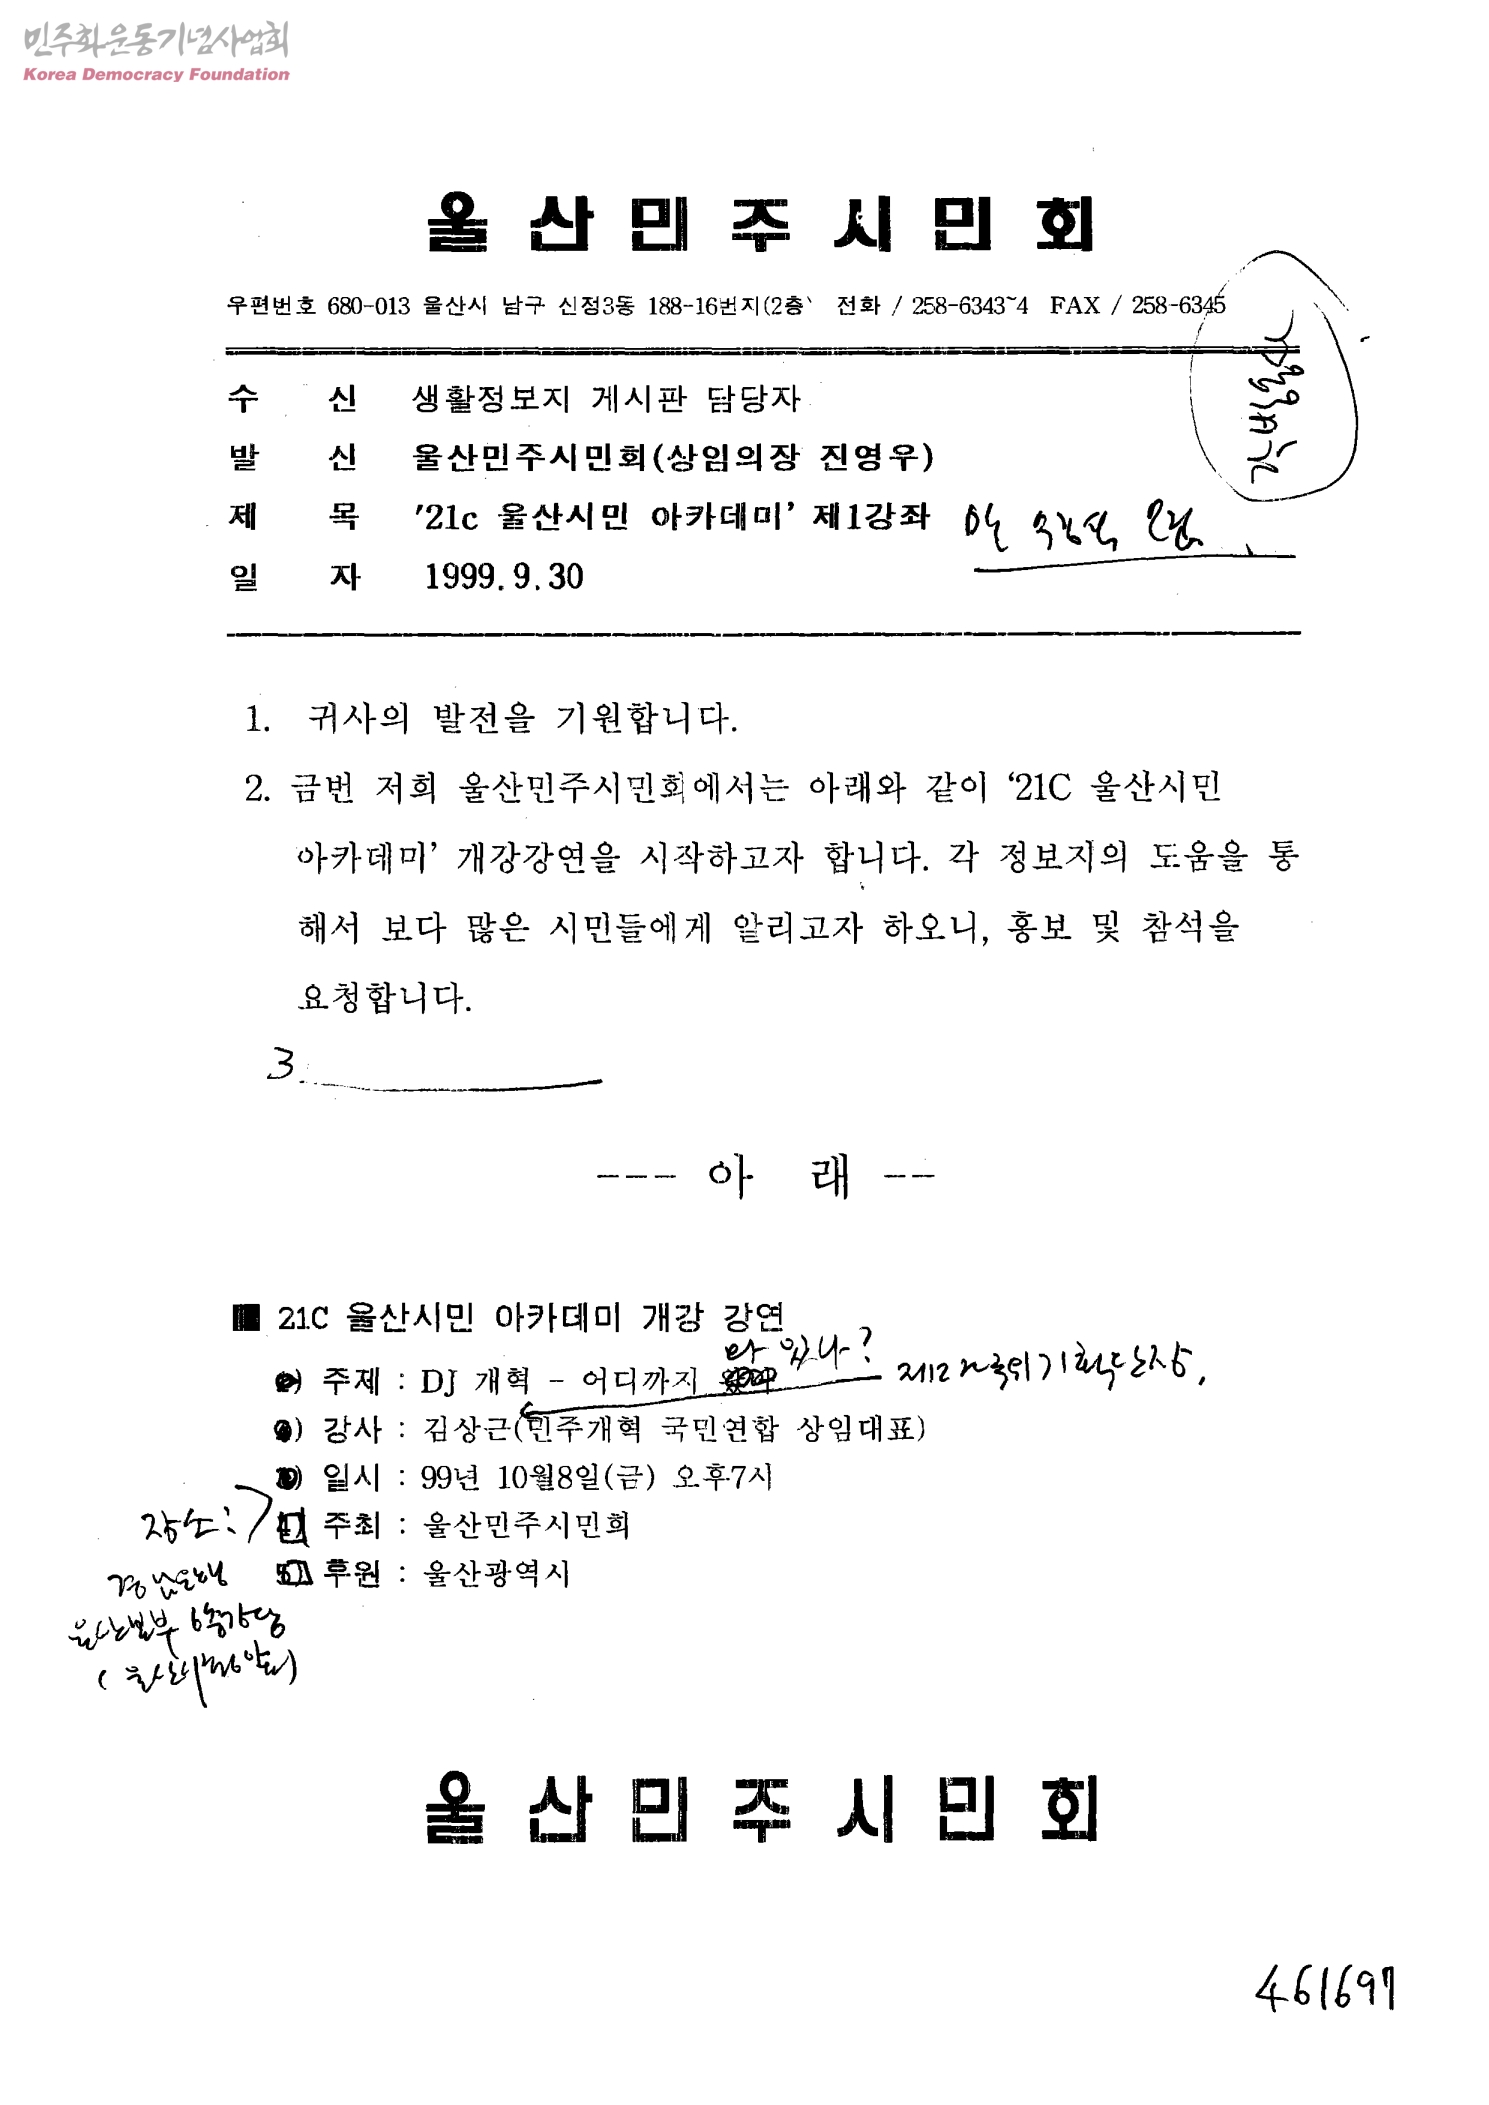 민주화운동기념사업회
Korea Democracy Foundation
울산민주시민회
우편번호 680-013 울산시 남구 신정3동 188-16번지(2층) 전화 / 258-6343~4 FAX / 258-6345
수 신 생활정보지 게시판 담당자
발 신 울산민주시민회(상임의장 진영우)
제 목 '21c 울산시민 아카데미' 제1강좌
일 자 1999. 9. 30
1. 귀사의 발전을 기원합니다.
2. 금번 저희 울산민주시민회에서는 아래와 같이 '21C 울산시민
아카데미' 개강강연을 시작하고자 합니다. 각 정보지의 도움을 통
해서 보다 많은 시민들에게 알리고자 하오니, 홍보 및 참석을
요청합니다.
3.
--- 아 래 --
■ 21C 울산시민 아카데미 개강 강연
와 있나?
주제 : DJ 개혁 - 어디까지
제12건국위 기획단장,
강사 : 김상근(민주개혁 국민연합 상임대표)
일시 : 99년 10월8일(금) 오후7시
장소:
4) 주최 : 울산민주시민회
5) 후원 : 울산광역시
경남은행
울산본부 6층강당
울산민주시민회
461697